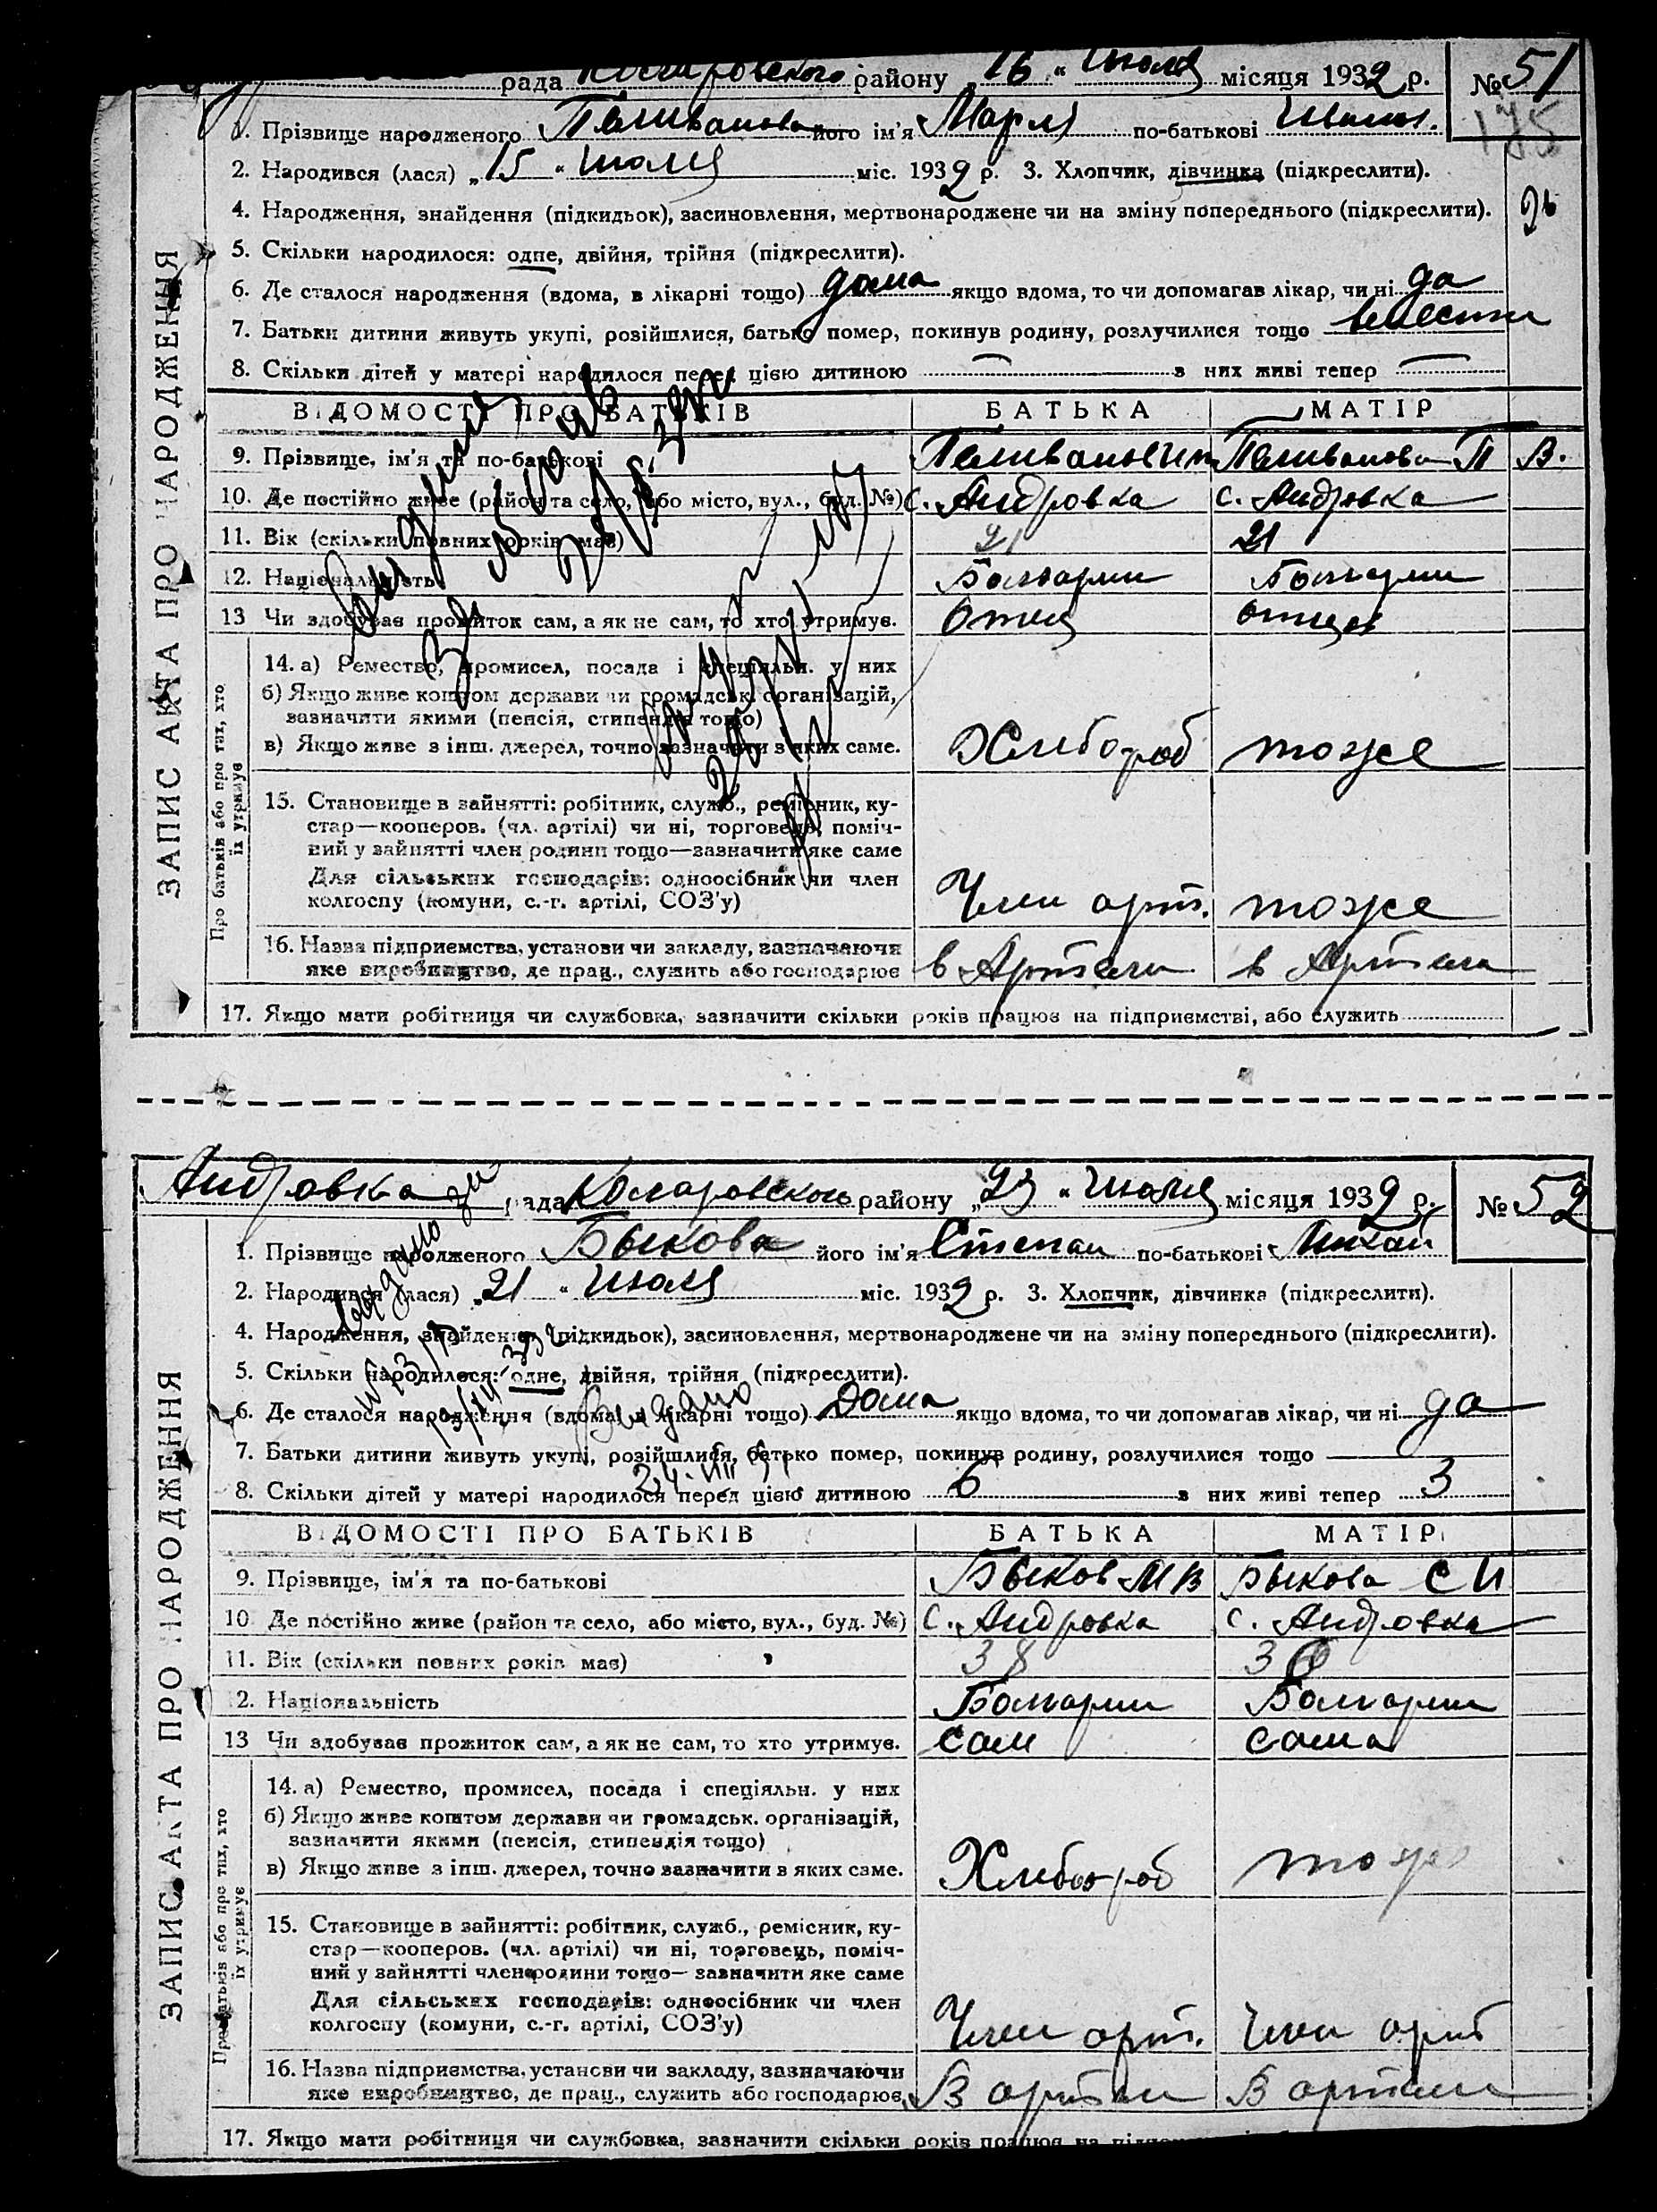 рада Коларовского району „16 “ Июля місяця 1932 р. № 51
175
1. Прізвище народженого Пеливанова його ім'я Мария по-батькові Иван.
2. Народився (лася) „15 “ Июля міс. 1932 р. 3. Хлопчик, дівчинка (підкреслити).
4. Народження, знайдення (підкидьок), засиновлення, мертвонароджене чи на зміну попереднього (підкреслити).
5. Скільки народилося: одне, двійня, трійня (підкреслити).
6. Де сталося народження (вдома, в лікарні тощо) дома якщо вдома, то чи допомагав лікар, чи ні да
7. Батьки дитини живуть укупі, розійшлися, батько помер, покинув родину, розлучилися тощо вместе
8. Скільки дітей у матері народилося перед цією дитиною — з них живі тепер —
ВІДОМОСТІ ПРО БАТЬКІВ БАТЬКА МАТІР
9. Прізвище, ім'я та по-батькові Пеливанов И Пеливанова П В.
10. Де постійно живе (район та село, або місто, вул., буд. №) с. Андровка с. Андровка
11. Вік (скільки повних років має) 21 21
12. Національність Болгарин Болгарин
13 Чи здобуває прожиток сам, а як не сам, то хто утримує. Отец отец
14. а) Ремество, промисел, посада і спеціяльн. у них
б) Якщо живе коштом держави чи громадськ. організацій,
зазначити якими (пенсія, стипендія тощо)
в) Якщо живе з інш. джерел, точно зазначити в яких саме. Хлебороб тоже
15. Становище в зайнятті: робітник, служб., ремісник, ку-
стар—кооперов. (чл. артілі) чи ні, торговець, поміч-
ний у зайнятті член родини тощо—зазначити яке саме
Для сільських господарів: одноосібник чи член
колгоспу (комуни, с.-г. артілі, СОЗ'у) Член арт. тоже
16. Назва підприємства, установи чи закладу, зазначаючи
яке виробництво, де прац., служить або господарює в Артели в Артели
17. Якщо мати робітниця чи службовка, зазначити скільки років працює на підприємстві, або служить
ЗАПИС АКТА ПРО НАРОДЖЕННЯ
Про батьків або про тих, хто
їх утримує
Андровка рада Коларовского району „23 “ Июля місяця 1932 р. № 52
1. Прізвище народженого Быкова його ім'я Степан по-батькові Михай
2. Народився (лася) „21 “ Июля міс. 1932 р. 3. Хлопчик, дівчинка (підкреслити).
4. Народження, знайдення (підкидьок), засиновлення, мертвонароджене чи на зміну попереднього (підкреслити).
5. Скільки народилося: одне, двійня, трійня (підкреслити).
6. Де сталося народження (вдома, в лікарні тощо) Дома якщо вдома, то чи допомагав лікар, чи ні да
7. Батьки дитини живуть укупі, розійшлися, батько помер, покинув родину, розлучилися тощо
8. Скільки дітей у матері народилося перед цією дитиною 6 з них живі тепер 3
Выдано
ВІДОМОСТІ ПРО БАТЬКІВ БАТЬКА МАТІР
9. Прізвище, ім'я та по-батькові Быков М В Быкова С И
10 Де постійно живе (район та село, або місто, вул., буд. №) с. Андровка с. Андровка
11. Вік (скільки повних років має) 38 36
12. Національність Болгарин Болгарин
13 Чи здобуває прожиток сам, а як не сам, то хто утримує. сам сама
14. а) Ремество, промисел, посада і спеціяльн. у них
б) Якщо живе коштом держави чи громадськ. організацій,
зазначити якими (пенсія, стипендія тощо)
в) Якщо живе з інш. джерел, точно зазначити в яких саме. Хлебороб тоже
15. Становище в зайнятті: робітник, служб., ремісник, ку-
стар—кооперов. (чл. артілі) чи ні, торговець, поміч-
ний у зайнятті член родини тощо—зазначити яке саме
Для сільських господарів: одноосібник чи член
колгоспу (комуни, с.-г. артілі, СОЗ'у) Член арт. Член арт
16. Назва підприємства, установи чи закладу, зазначаючи
яке виробництво, де прац., служить або господарює В артели В артели
17. Якщо мати робітниця чи службовка, зазначити скільки років працює на
ЗАПИС АКТА ПРО НАРОДЖЕННЯ
Про батьків або про тих, хто
їх утримує